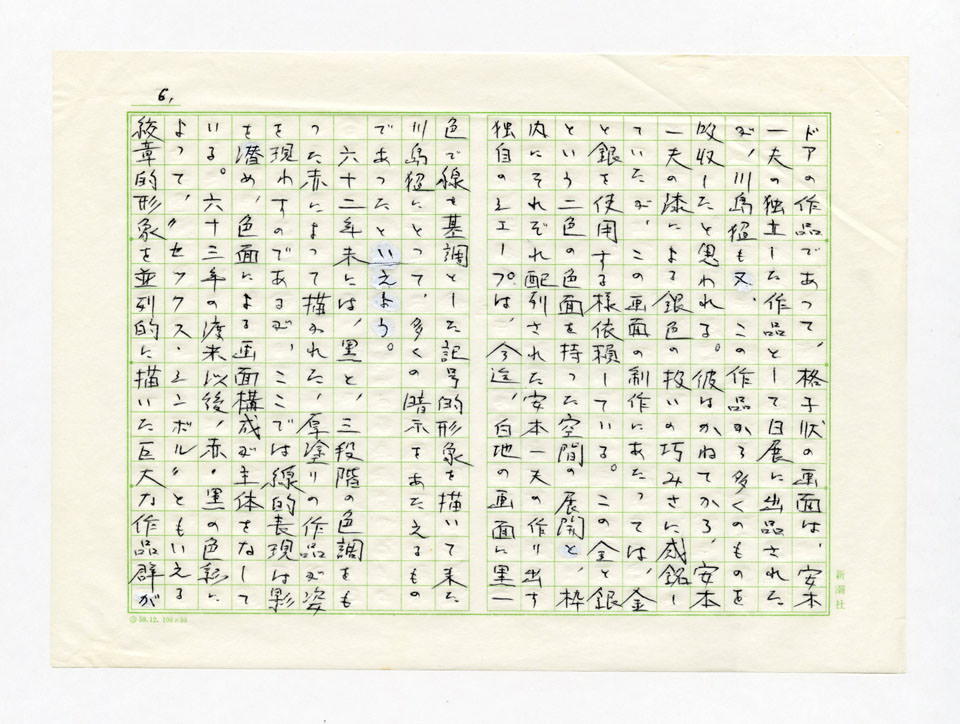 6,
ドアの作品であって、格子状の画面は、安本
一夫の独立した作品として日展に出品された
が、川島猛も又、この作品から多くのものを
吸収したと思われる。彼はかねてから、安本
一夫の漆による銀色の扱いの巧みさに感銘し
ていたが、この画面の制作にあたっては、金
と銀を使用する様依頼している。この金と銀
という二色の色面を持った空間の展開と、枠
内にそれぞれ配列された安本一夫の作り出す
独自のシエープは、今迄、白地の画面に黒一
色で線を基調とした記号的形象を描いて来た
川島猛にとって、多くの暗示をあたえるもの
であったといえよう。
六十二年末には、黒と、三段階の色調をも
った赤によって描かれた、厚塗りの作品が姿
を現わすのであるが、ここでは線的表現は影
を潜め、色面による画面構成が主体をなして
いる。六十三年の渡米以後、赤・黒の色彩に
よって、〝セックス・シンボル〟ともいえる
紋章的形象を並列的に描いた巨大な作品群が
新潮社
59.12. 100×88